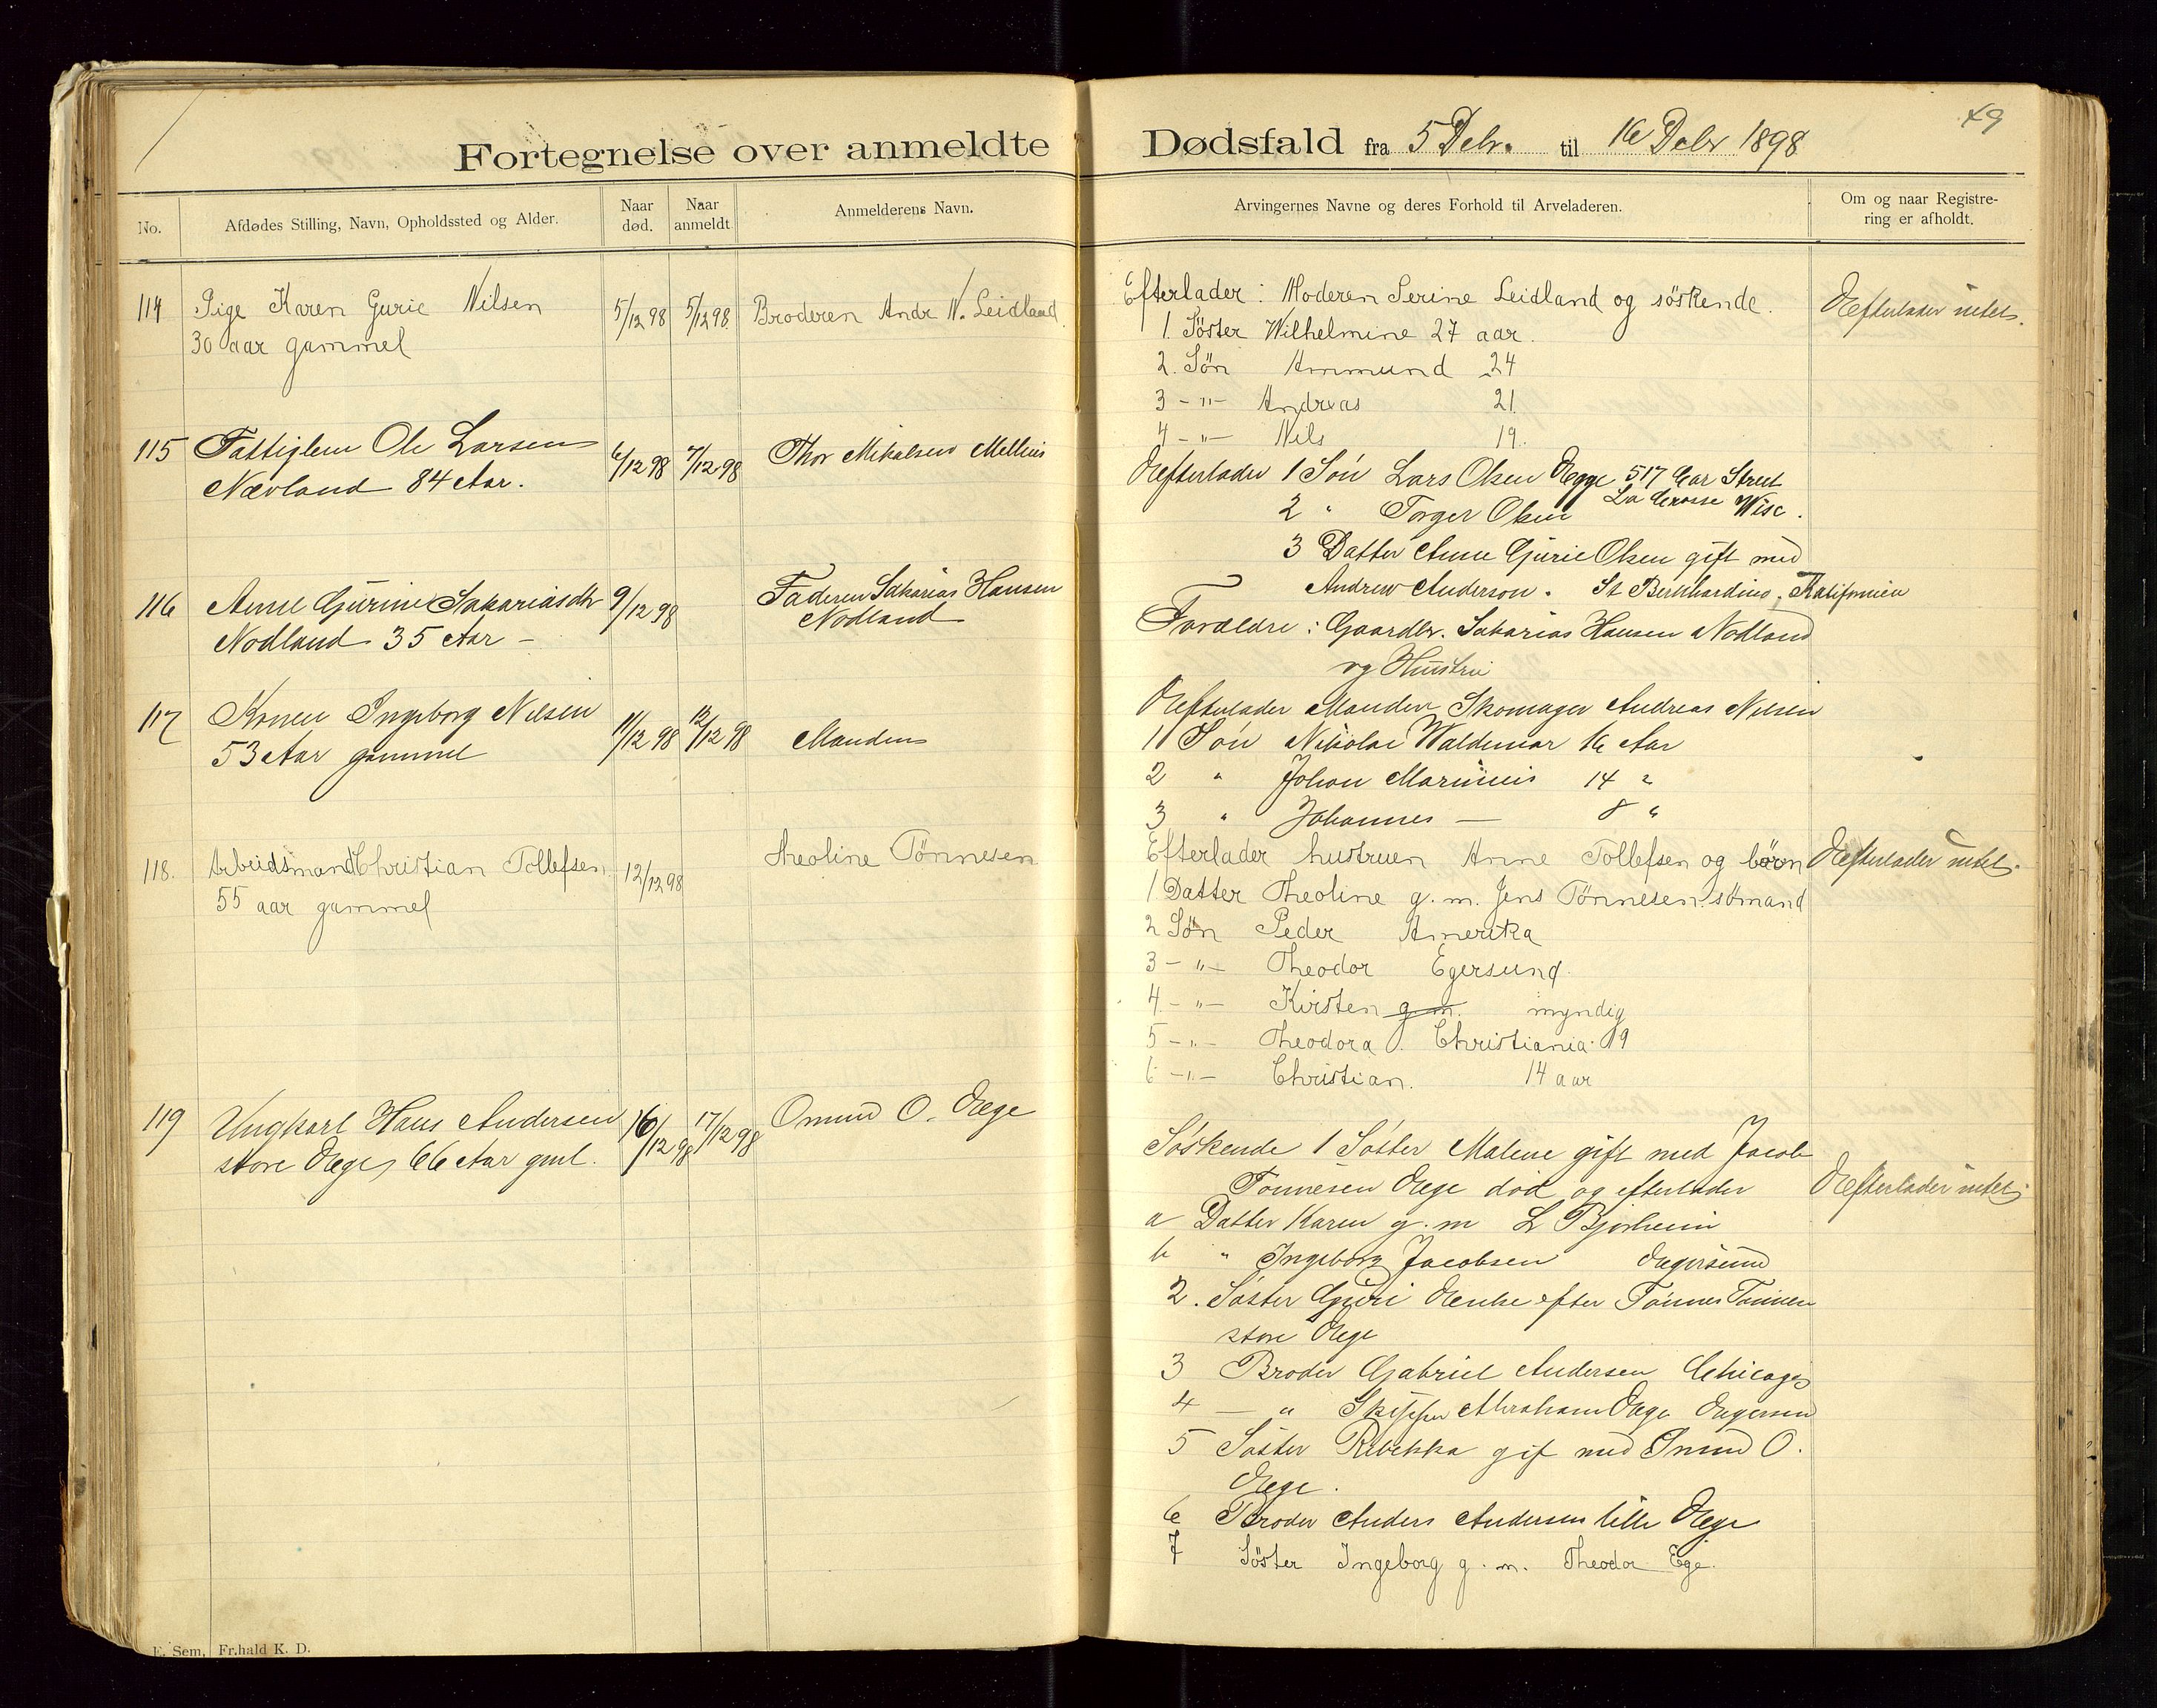 Fortegnelse over anmeldte Dødsfald fra 5 Debr. til 16 Debr 1898
49
No.
Afdødes Stilling, Navn, Opholdssted og Alder.
Naar død.
Naar anmeldt
Anmelderens Navn.
Arvingernes Navne og deres Forhold til Arveladeren.
Om og naar Registre-
ring er afholdt.
114 Pige Karen Gurie Nilsen 5/12 98 5/12 98 Broderen Andr N. Leidland
30 aar gammel
Efterlader: Moderen Serine Leidland og söskende. Efterlader intet.
1. Söster Wilhelmine 27 aar.
2. Sön Ammund 24
3 -"- Andreas 21
4 -"- Nils 19.
115 Fattiglem Ole Larsen 6/12 98 7/12 98 Thor Mikalsen Mellins
Nævland 84 Aar.
Efterlader 1 Sön Lars Olsen Egge 517 Car Street
La Crosse Wisc.
2 " Torger Olsen
3 Datter Anne Gurie Olsen gift med
Andrew Anderson. St Bernhardino, Kalifonien
116 Anne Gurine Sakariasdtr 9/12 98 Faderen Sakarias Hansen
Nodland 35 Aar - Nodland
Forældre: Gaardbr. Sakarias Hansen Nodland
og Hustru
117 Konen Ingeborg Nilsen 11/12 98 12/12 98 Manden
53 Aar gammel
Efterlader Manden Skomager Andreas Nilsen
1 Sön Nikolai Waldemar 16 Aar
2 " Johan Marinius 14 "
3 " Johannes — 8 "
118. Arbeidsmand Christian Tollefsen 12/12 98 Theoline Tönnesen
55 aar gammel
Efterlader hustruen Anne Tollefsen og börn Efterlader intet.
1 Datter Theoline g. m. Jens Tönnesen. sömand
2 Sön Peder Amerika
3 -"- Theodor Egersund.
4 -"- Kirsten g. m. myndig
5 -"- Theodora. Christiania. 19
6 -"- Christian. 14 aar
119 Ungkarl Hans Andersen 16/12 98 17/12 98 Omund O. Ege
store Ege, 66 Aar gml.
Söskende 1 Söster Malene gift med Jacob
Tönnesen Ege död og efterlader Efterlader intet.
a Datter Karen g. m L Bjorheim
b " Ingeborg Jacobsen Egersund
2. Söster Guri Enke efter Tönnes Tönnesen
store Ege
3 Broder Gabriel Andersen Chicago
4 — " Skipper Abraham Ege Egersund
5 Söster Rebekka gif med Omund O.
Ege.
6 Broder Anders Andersen lille Ege
7 Söster Ingeborg g. m. Theodor Ege.
E. Sem, Fr.hald K. D.